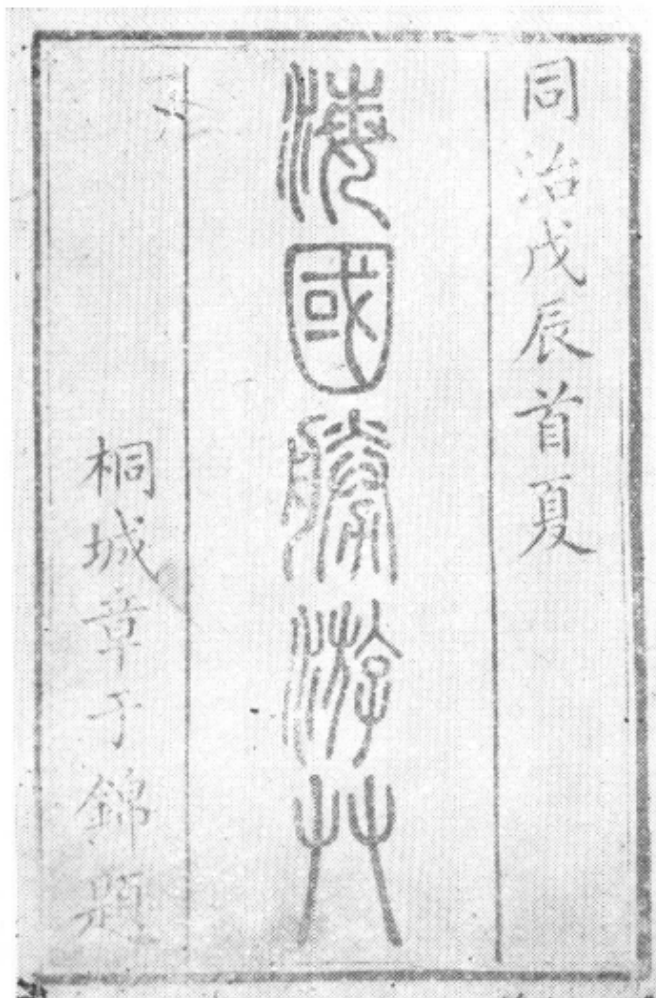 同治戊辰首夏
海國勝游艸
桐城章于錦題